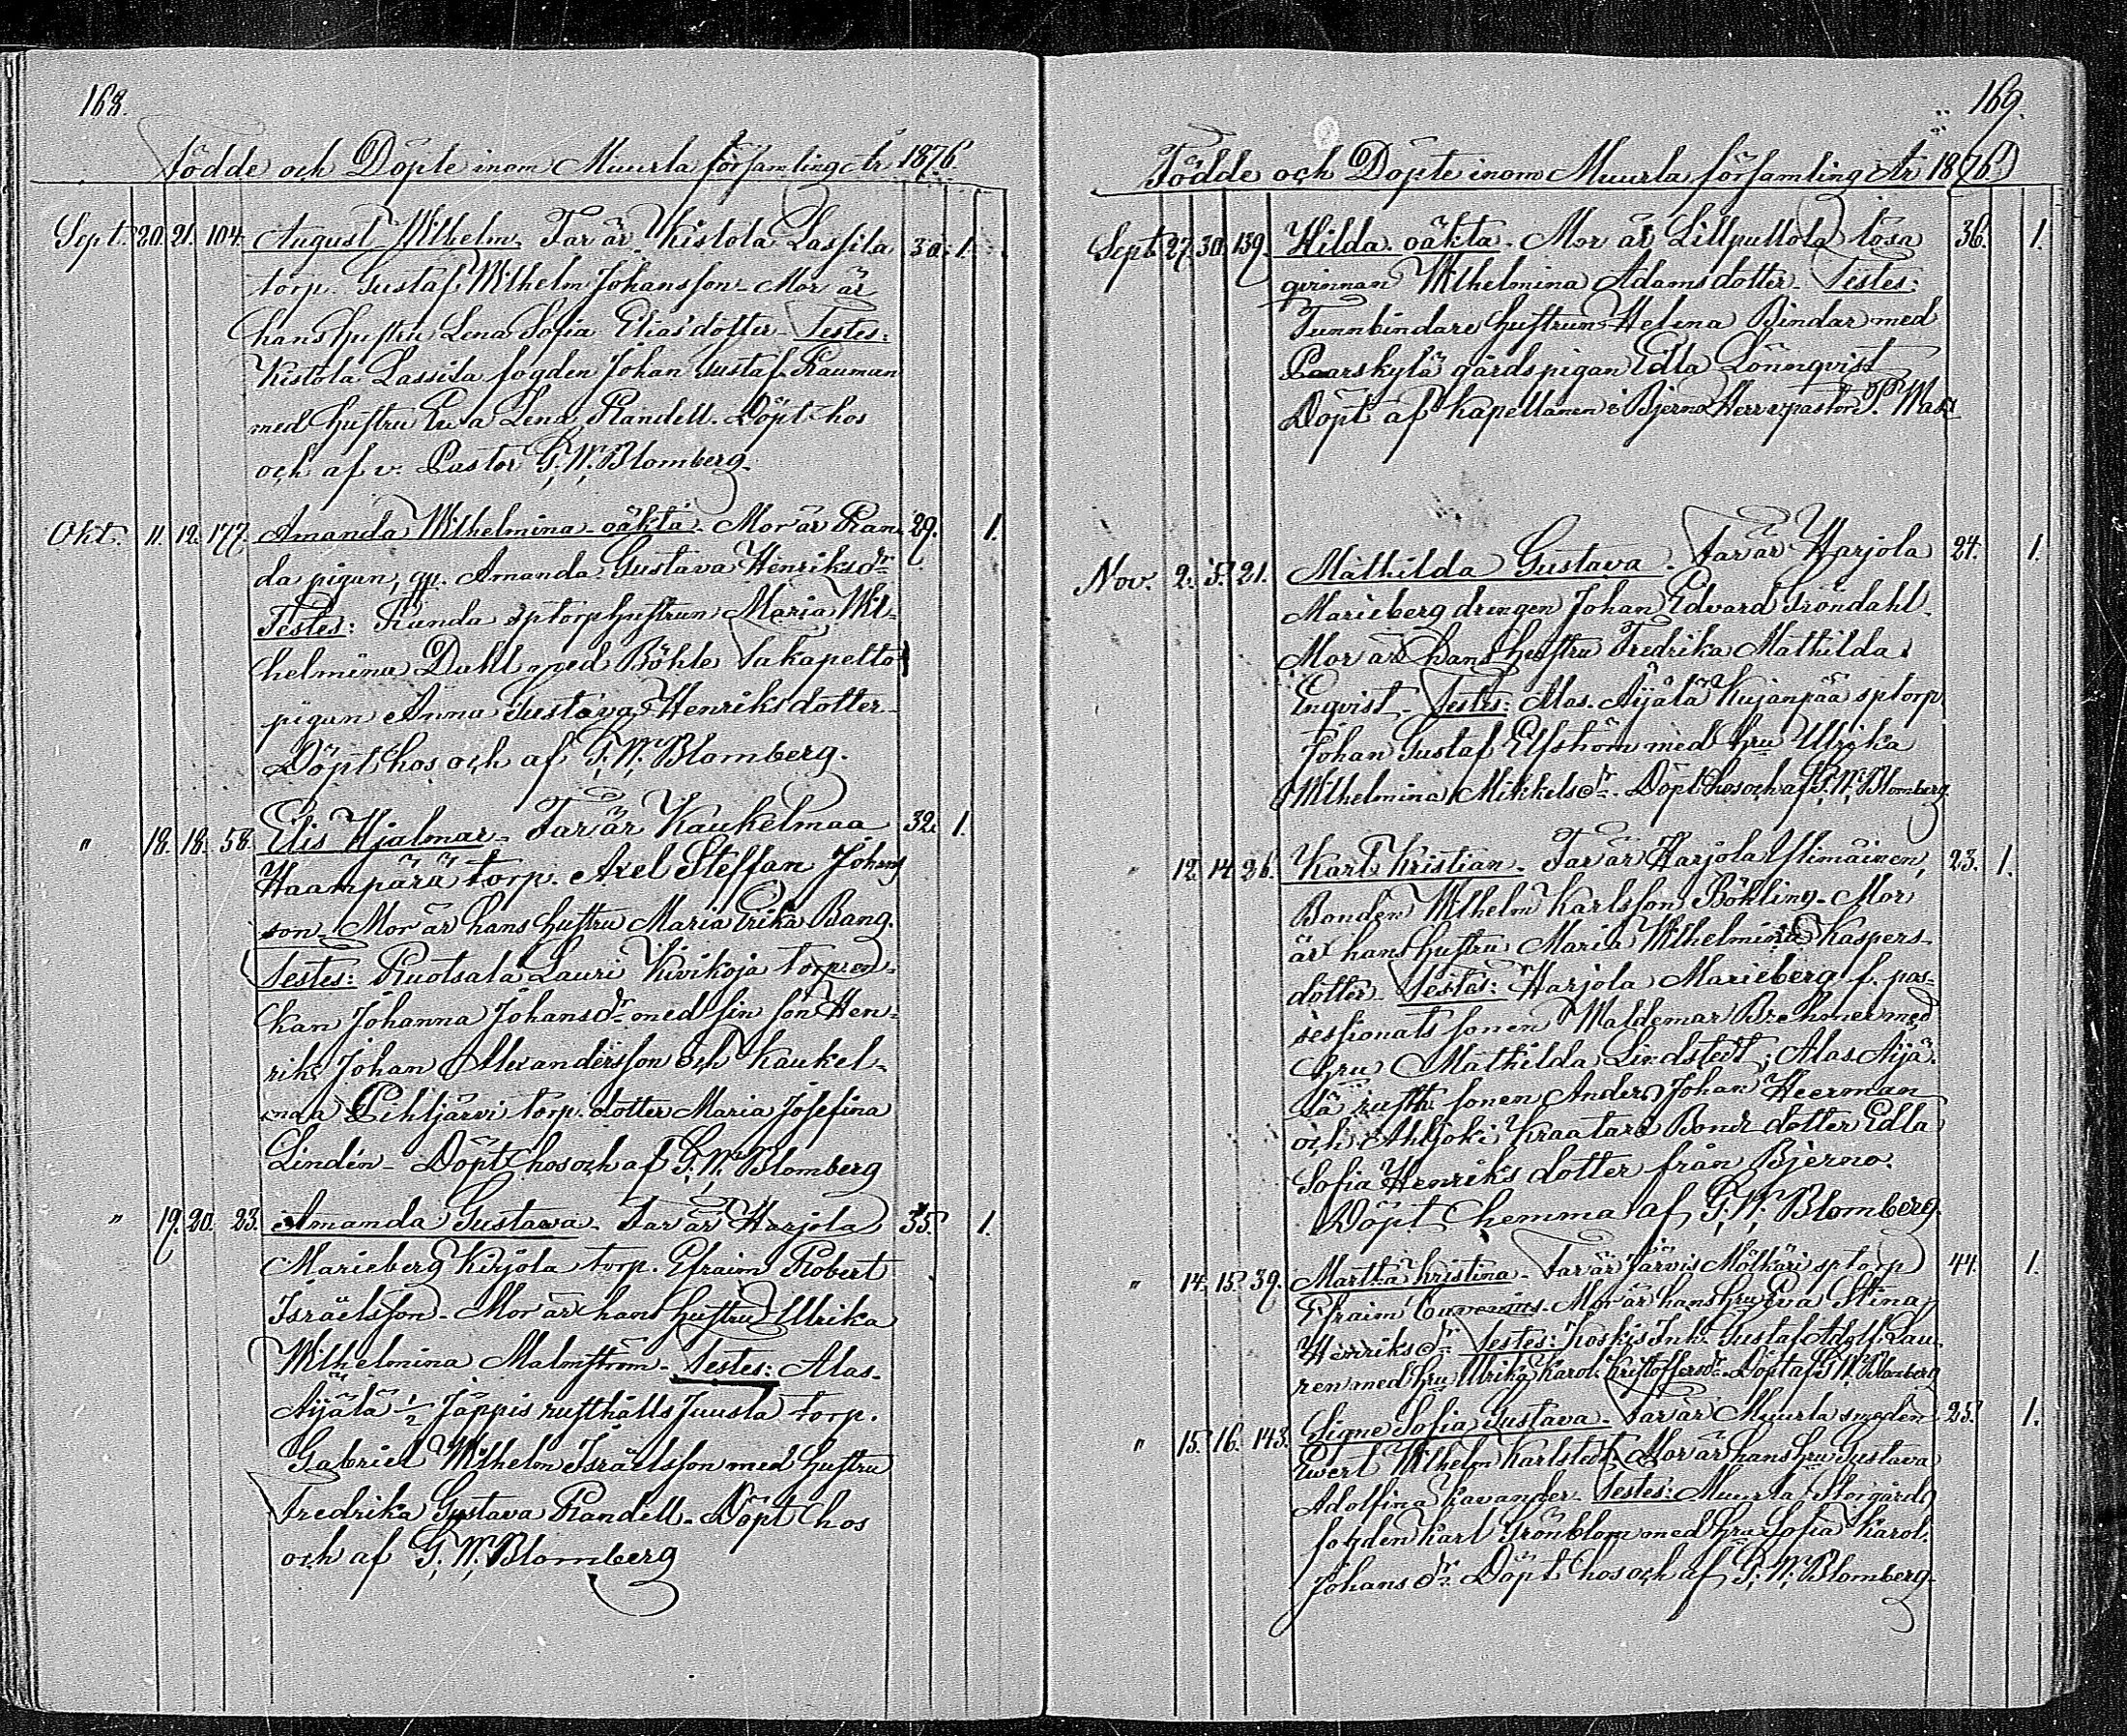 168.
Födde och Döpte inom Muurla församling År 1876.
Sept. 20. 21. 104. August Wilhelm. Far är Kistola Lassila 30. 1.
torp. Gustaf Wilhelm Johansson. Mor är
hans hustru Lena Sofia Eliasdotter. Testes:
Kistola Lassila fogden Johan Gustaf Rauman
med hustru Eva Lena Randell. Döpt hos
och af v. Pastor G. W. Blomberg.
Okt. 11. 12. 177. Amanda Wilhelmina oäkta. Mor är Ran- 29. 1.
da pigan, qp. Amanda Gustava Henriksdr
Testes: Randa sptorphustrun Maria Wil-
helmina Dahl med Böhle Takapelto
pigan Anna Gustava Henriksdotter.
Döpt hos och af G. W. Blomberg.
" 18. 18. 58. Elis Hjalmar. Far är Kaukelmaa 32. 1.
Haampärä torp. Axel Steffan Johans
son. Mor är hans hustru Maria Erika Bang.
Testes: Ruotsala Lauri Kivikoja torp.en-
kan Johanna Johansdr med sin son Hen-
rik Johan Alexandersson och Kaukel-
maa Pihljärvi torp. dotter Maria Josefina
Lindén. Döpt hos och af G. W. Blomberg
" 19. 20. 23. Amanda Gustava. Far är Harjola 35. 1.
Marieberg Kirjola torp. Efraim Robert
Israëlsson. Mor är hans hustru Ulrika
Wilhelmina Malmström. Testes: Alas.
Äijälä 1/2 Jäppis rusthålls Juusla torp.
Gabriel Wilhelm Israëlsson med hustru
Fredrika Gustava Randell. Döpt hos
och af G. W. Blomberg
169.
Födde och Döpte inom Muurla församling År 1876
Sept. 27. 30. 139. Hilda. oäkta. Mor är Lillpullola lösa 36. 1.
qvinnan Wilhelmina Adamsdotter. Testes:
Tunnbindare hustrun Helena Bindar med
Paarskylä gårdspigan Edla Lönnqvist
Döpt af kapellanen i Bjerno Herr v. pastor
Nov. 2. 5. 21. Mathilda Gustava. Far är Harjola 24. 1.
Marieberg drengen Johan Edvard Gröndahl.
Mor är hans hustru Fredrika Mathilda
Enqvist. Testes: Alas. Äijälä Kujanpää sptorp
Johan Gustaf Elfström med hru Ulrika
Wilhelmina Mikkelsdr. Döpt hos och af G. W. Blomberg.
" 12. 14. 26. Karl Kristian. Far är Harjola Ylimäinen, 23. 1.
Bonden Wilhelm Karlsson Böhling. Mor
är hans hustru Maria Wilhelmina Kaspers-
dotter. Testes: Harjola Marieberg f. pos-
sessionats sonen Waldemar Brehmer med
hru Mathilda Lindstedt; Alas. Äijä-
lä rusth. sonen Anders Johan Heerman
och Ahljoki Kraatara Bonde dotter Edla
Sofia Henriksdotter från Bjerno.
Döpt hemma af G. W. Blomberg.
" 14. 15. 39. Martha Kristina. Far är Järvis Mölkäri sptorp 44. 1.
Efraim Cunenius. Mor är hans hru Eva Stina
Henriksdr Testes: Koskis Inh. Gustaf Adolf Lau-
ren med hru Ulrika Karol. Kristoffersdr. Döpt af G. W. Blomberg
" 15. 16. 143. Signe Sofia Gustava. Far är Muurla smeden 25. 1.
Evert Wilhelm Karlstedt. Mor är hans hru Gustava
Adolfina Kavander. Testes: Muurla Storgårds
fogden Karl Grönblom med hru Sofia Karol.
Johansdr. Döpt hos och af G. W. Blomberg.